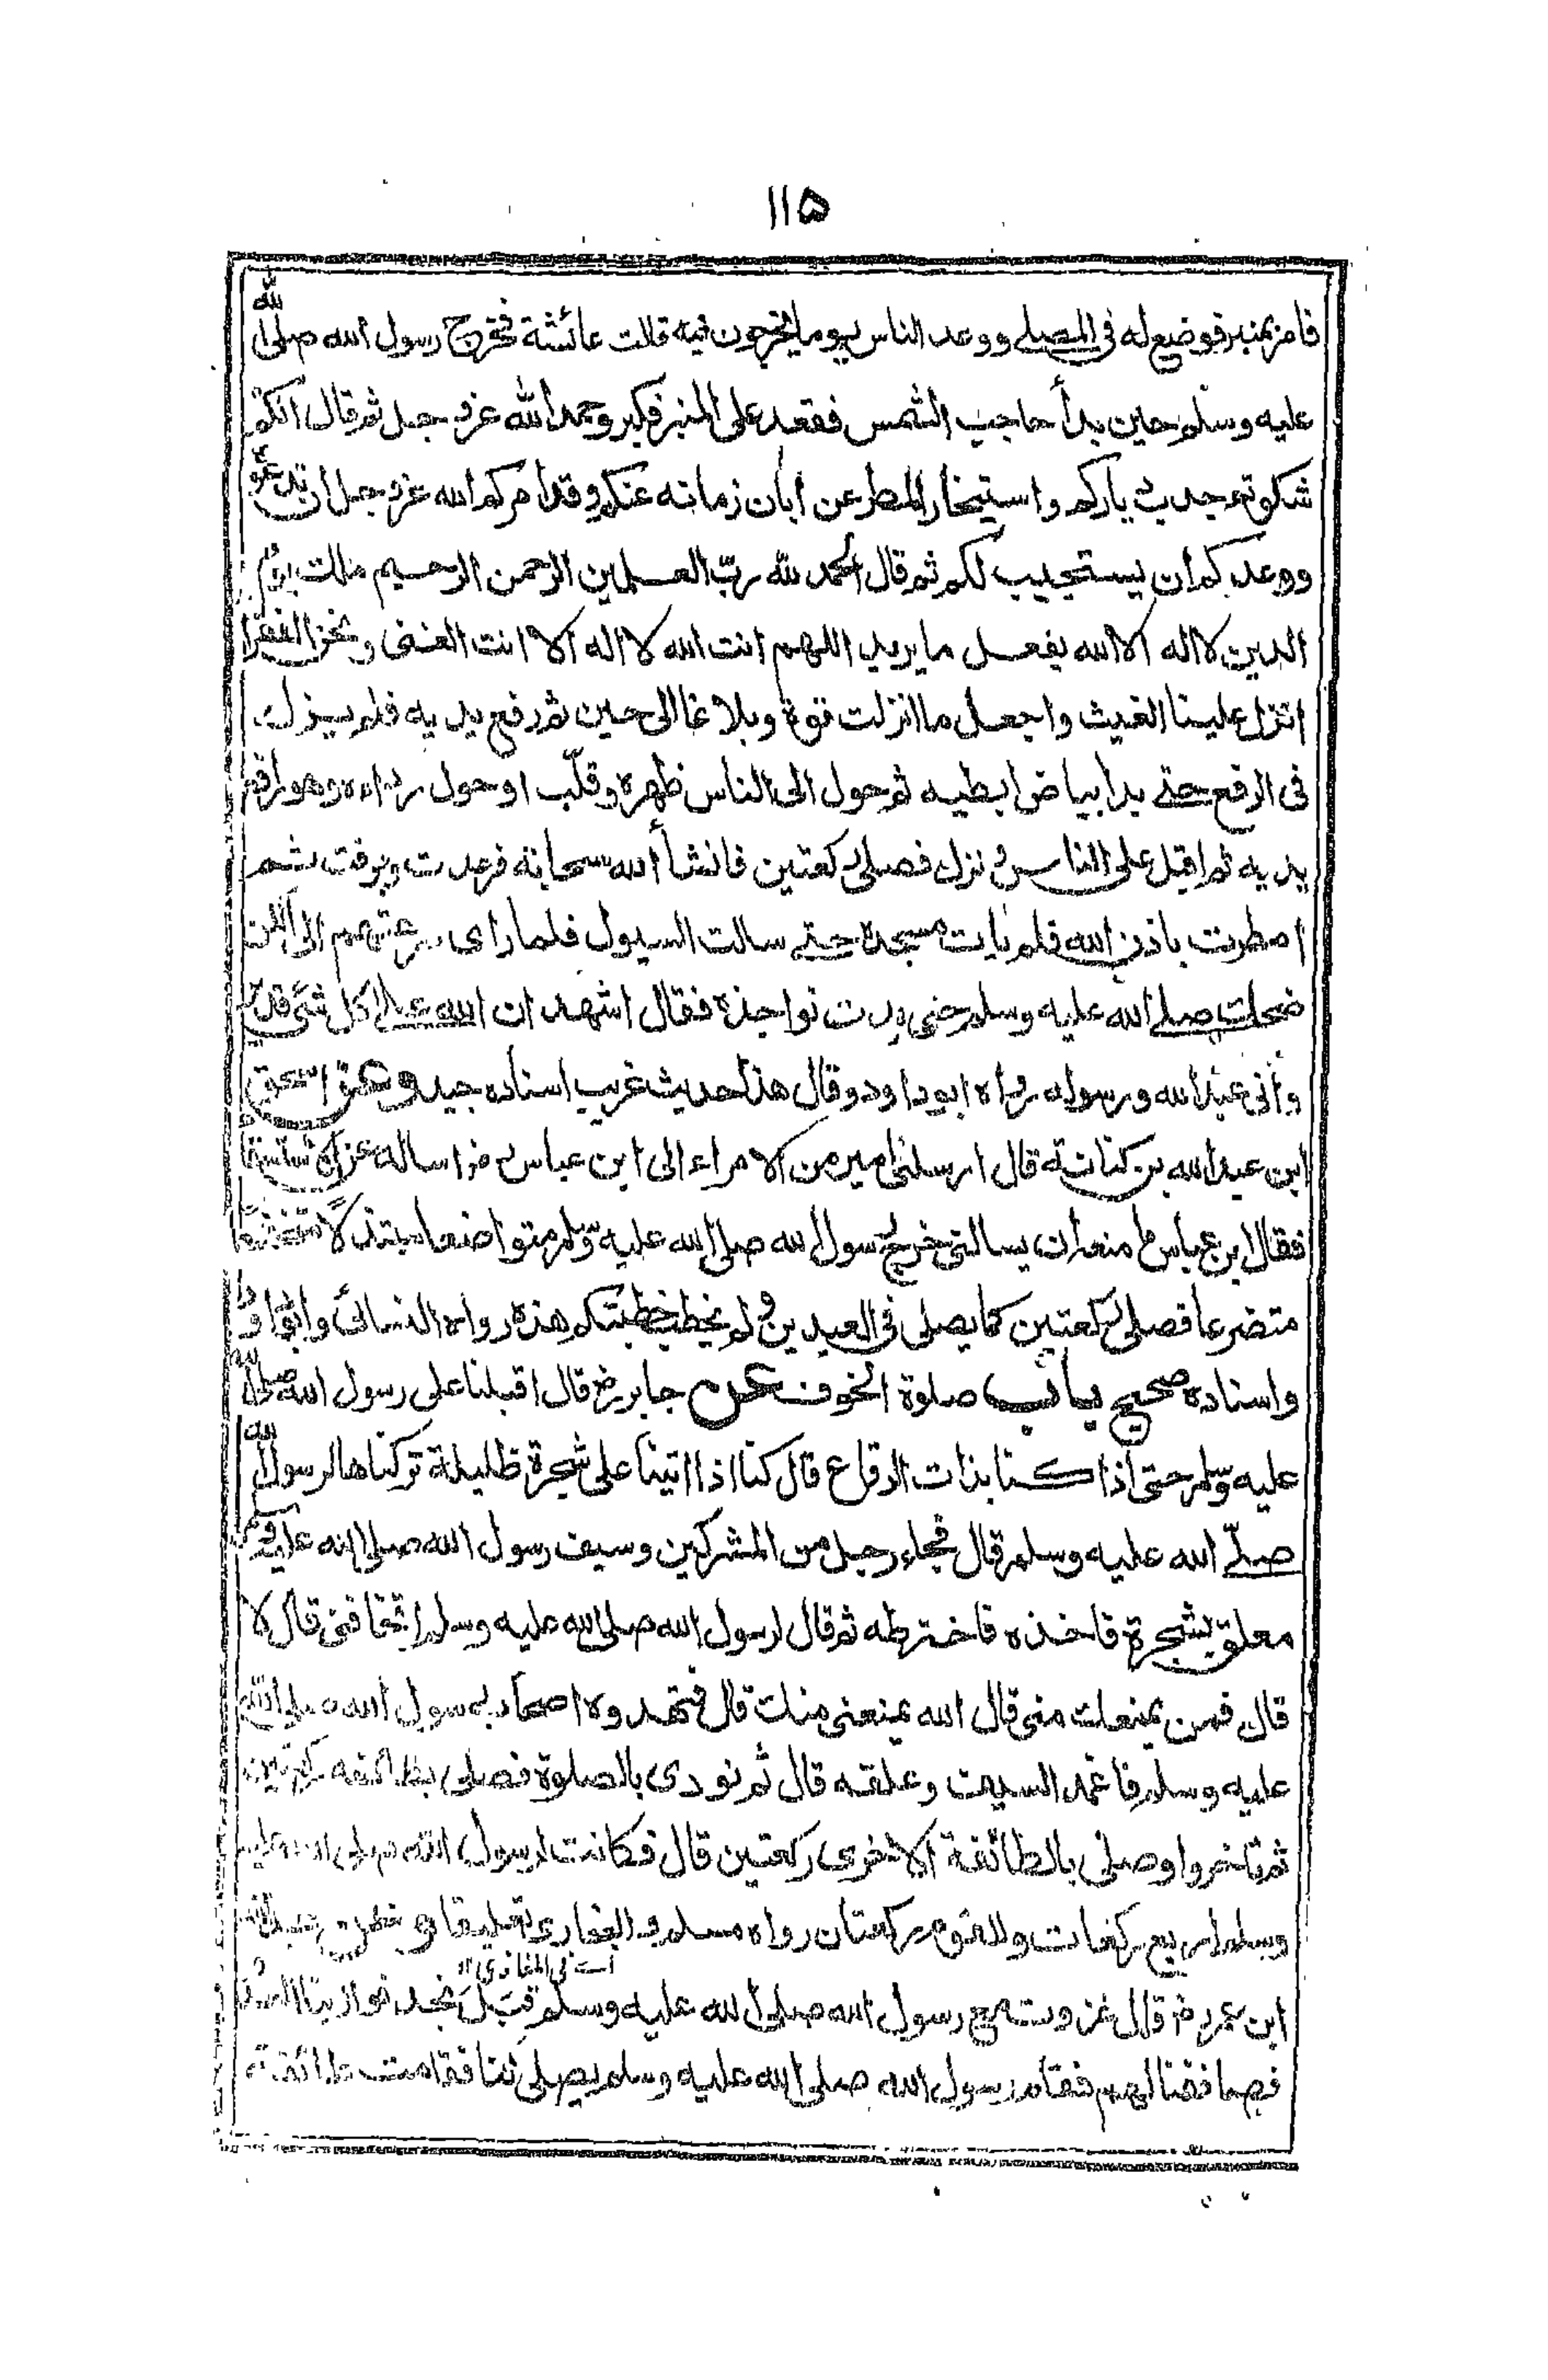 ۱۱۵
فامر بمنبر فوضع له فى المصلے ووعد الناس يوما يخرجون فيه قالت عائشة فخرج رسول الله صلى الله
عليه وسلم حين بدأ حاجب الشمس فقعد على المنبر فكبر وحمد الله عز وجل ثم قال انكم
شكوتم جدب دياركم واستيخار المطر عن ابان زمانه عنكم وقد امركم الله عز وجل ان تدعوه
ووعدكم أن يستجيب لكم ثم قال الحمد لله ربّ العلمين الرحمن الرحيم ملك يوم
الدين لا اله الا الله يفعل ما يريد اللهم انت الله لا اله الا انت الغنى ونحن الفقرا
انزل علينا الغيث واجعل ما انزلت قوة وبلاغا الى حين ثم رفع يديه فلم يزل
فى الرفع حتے بدا بياض ابطيه ثم حول الى الناس ظهره وقلّب او حول رداءه وهو رافع
يديه ثم اقبل على الناس و نزل فصلى ركعتين فانشأ الله سحابة فرعدت وبرقت ثم
امطرت باذن الله فلم يأت مسجده حتے سالت السيول فلما راى سرعتهم الى الكن
ضحك صلے الله عليه وسلم حتى بدت نواجذه فقال اشهد ان الله علے كل شئ قدير
وأنى عبد الله ورسوله رواه ابو داود وقال هذا حديث غريب اسناده جيد وعن اسحق
ابن عبد الله بن كنانة قال ارسلنى امير من الامراء الى ابن عباس رض اساله عن الاستسقا
فقال ابن عباس ما منعه ان يسالنى خرج رسول الله صلى الله عليه وسلم متواضعا مبتذلا متخشعا
متضرعا فصلى ركعتين كما يصلى فى العيدين و لم يخطب خطبتكم هذه رواه النسائى وابو داود
واسناده صحيح باب صلوة الخوف عن جابر رض قال اقبلنا على رسول الله صلى الله
عليه وسلم حتى اذا كنا بذات الرقاع قال كنا اذا اتينا على شجرة ظليلة تركناها لرسول الله
صلّے الله عليه وسلم قال فجاء رجل من المشركين وسيف رسول الله صلى الله عليه وسلم
معلق بشجرة فاخذه فاخترطه ثم قال لرسول الله صلى الله عليه وسلم اتخافنى قال لا
قال فمن يمنعك منى قال الله يمنعنى منك قال فتهدوه اصحاب رسول الله صلى الله
عليه وسلم فاغمد السيف وعلقه قال ثم نودى بالصلوة فصلى بطائفه ركعتين
ثم تاخروا وصلى بالطائفة الاخرى ركعتين قال فكانت لرسول الله صلى الله عليه
وسلم اربع ركعات وللقوم ركعتان رواه مسلم و البخارى تعليقا و عن عبد الله
اے فى المغازى ۱۲
ابن عمر رض قال غزوت مع رسول الله صلى الله عليه وسلم قِبَلَ نجد فوازينا العدو
فصاففنا لهم فقام رسول الله صلى الله عليه وسلم يصلى لنا فقامت طائفة